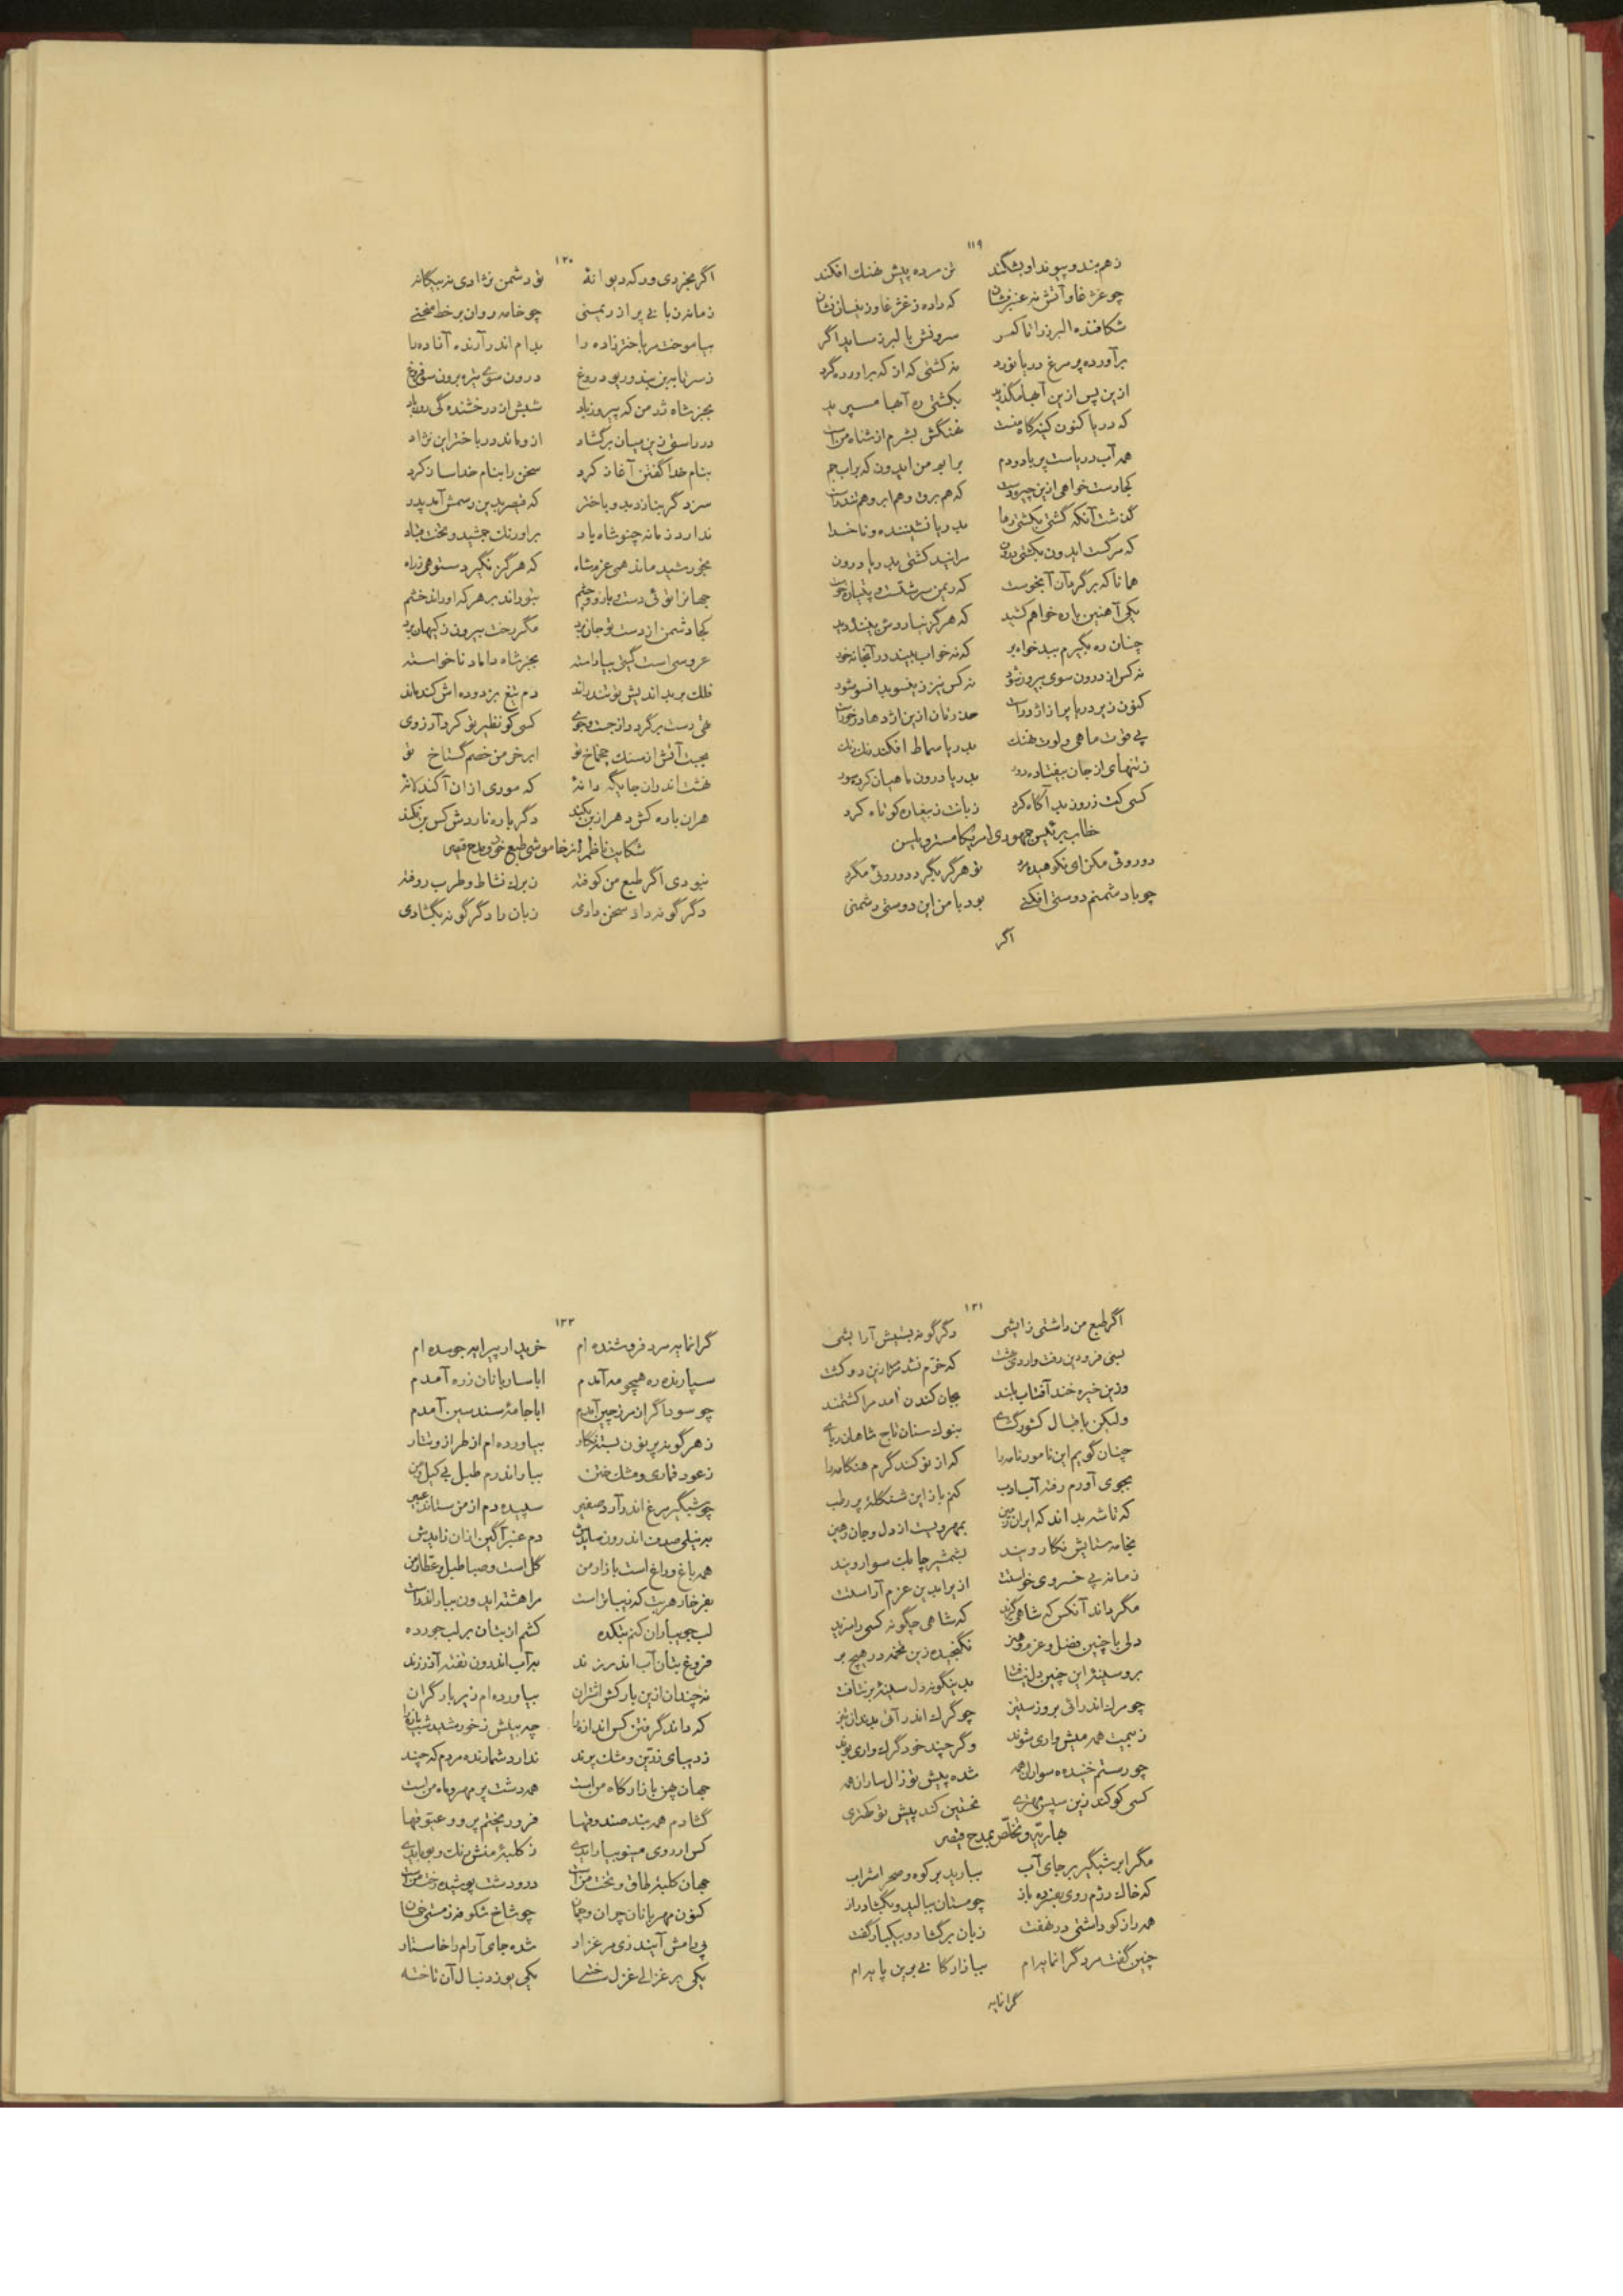 ۱۱۹
زهم بند و پیوند او بشکند تن مرده پیش نهنگ افکند
چو غژغاو آتش نه عنبرفشان که داده ز غژغاو زینسان نشان
شکافنده البرز را تا کمر سرونش بالبرز ساید اگر
برآورده پر مرغ دریا نورد نه کشتی که از که برآورده گرد
ازین پس ازین آبها مگذرید بکشتی ره آبها مسپرید
که دریا کنون کینه گاه منست نهنگش بشرم از شاه من است
همه آب دریاست پر باد و دم برآید من ایدون که براب جم
کجا رست خواهی ازین چیره دست که هم برق و هم ابر و هم تندر است
گذشت آنکه گشتی بکشتی رها بدریا نشیننده و ناخدا
که مرگست ایدون بکشتی درون مرانید کشتی بدریا درون
همانا که برگرد آن آبخوست که ریمن سرشتست و پتیاره خوست
یکی آهنین باره خواهم کشید که هرگز نیاردش بیننده دید
چنان ره بگیرم ببدخواه بر که نه خواب بیند در آنجا نه خور
نه کس از درون سوی بیرون شود نه کس نیز زینسو بدانسو شود
کنون زیر دریا پر از اژدهاست حذرتان ازین اژدها درخورست
پی قوت ماهی و لوت نهنگ بدریا سماط افکند رنگ رنگ
ز تنهای از جان بیفتاده دور بدریا درون ماهیان کرده سور
کسی کت ز روز بد آگاه کرد زبانت ز بیغاره کوتاه کرد
خطاب برئیس جمهوری امریکا مستر ویلسن
دوروئی مکن ای نکوهیده مرد تو هرگز بگرد دوروئی مگرد
چو با دشمنم دوستی افکنی بود با من این دوستی دشمنی
اگر
۱۲۰
اگر بخردی ور که دیوانهٔ تو دشمن نژادی نه بیگانهٔ
زمانرن بانی پر از ریمنی چو خامه روان بر خط منحنی
بیاموخت مر باختر زاده را بدام اندر آرنده آزاده را
ز سر تا ببن بند و ریو و دروغ درون سوی تیره برون سو فروغ
بجز شاه ژرمن که پیروز باد شبش از درخشنده گی روز باد
در راستی زین میان برگشاد ازو ماند در باختر این نژاد
بنام خدا گفتن آغاز کرد سخن را بنام خدا ساز کرد
سزد گر بنازد بدو باختر که قیصر بدین رسمش آمد پدر
ندارد زمانه چنو شاه یاد بر اورنگ جمشید و تخت قباد
بخورشید ماند همی عزم شاه که هرگز نگیرد ستوهی ز راه
جهانرا توئی دست و بازو و چشم بتو راند بر هر که او راند خشم
کجا دشمن از دست تو جان برد مگر رخت بیرون ز کیهان برد
عروسی است گیتی بیاراسته بجز شاه داماد ناخواسته
فلک بر بداندیش تو تند راند دم تیغ بزدوده اش کند ماند
تهی دست برگردد از جست و جوی کسی کو نظیر تو کرد آرزوی
بجست آتش از سنگ چخماخ تو ابر خرمن خصم گستاخ تو
نهشت اندران جایگه دانهٔ که موری ازان آکند لانهٔ
هران باره کش دهر از بن بکند دگر باره ناردش کس برفکند
شکایت ناظم از خاموشی طبع خود و مدح قیصر
نبودی اگر طبع من کوفته ز برگ نشاط و طرب روفته
دگر گونه داد سخن دادمی زبان را دگرگونه بگشادمی
۱۲۱
اگر طبع من داشتی زایشی دگرگونه بستیش آرایشی
بسی فرودین رفت و اردیبهشت که خرم نشد مر مرا زین دو کشت
وزین خیره خند آفتاب بلند بجان کندن آمد مرا کشتمند
ولیکن باقبال کشورگشای بنوک سنان تاج شاهان ربای
چنان گویم این نامور نامه را که از نو کند گرم هنگامه را
بجوی آورم رفته آب ادب کنم باز این شنگله پر رطب
که تا شه بداند که ایران زمین بمهر ویست از دل و جان رهین
بخامه ستایش نگار ویند بشمشیر چابک سوار ویند
زمانه پی خسروی خواستت ازیرا بدین عزم آراستت
مگر داند آنکس که شاهی گزید که شاهی چگونه کسی را سزید
دلی با چنین فضل و عزم و هنر نگنجیده زین تخمه در هیچ بر
بر و سینهٔ این چنین دل نیافت بدینگونه دل سینهٔ بر نتافت
چو مرگ اندر آئی بروز ستیز چو گرگ اندر آئی بدندان تیز
ز بیمت همه میش واری شوند و گر چند خود گرگ واری بوند
چو رستم خنیده سواران همه شده پیش تو زال ساران همه
کسی کو کند زین سپس مهتری نخستین کند پیش تو کهتری
بهاریه و تخلص بمدح قیصر
مگر ابر شبگیر بر جای آب ببارید بر کوه و صحرا شراب
که خاک دژم روی پژمرده باز چو مستان ببالید و بگشاد راز
همه راز کو داشتی در نهفت زبان برگشاد و بیکبار گفت
چنین گفت مرد گرانمایه ام ببازارگانی برین پایه ام
گرانمایه
۱۲۲
گرانمایه مرد فروشنده ام خریدار پیرایه جوینده ام
سپارنده ره همچو مه آمدم ابا ساربانان ز ره آمدم
چو سوداگر از مرز چین آمدم ابا جامهٔ سندسین آمدم
ز هر گونه پرنون بسته نگار بیاورده ام از طراز و تتار
ز عود قماری و مشک ختن ببار اندرم طبل بی کیل و من
چو شبگیر مرغ اندر آرد صفیر سپیده دم از من ستاند عبیر
به نیلی صدف اندرون سایدش دم عنبرآگین ازان زایدش
همه باغ و راغ است بازار من گل است و صبا طبل و عطار من
بفرخار هر بت که زیباتر است مرا هشته ایدون ببار اندر است
لب جویباران کنم بتکده کشم از بتان بر لب جو رده
فروغ بتان آب اندر زند بر آب اندرون تفته آذر زند
نه چندان ازین بارکش اشتران بیاورده ام زیر بار گران
که داند گرفتن کس اندازه را چه بیشش ز خورشید شیرازه را
ز دیبای زرین و مشک پرند ندارد شمارنده مردم که چند
جهان پهن بازارگاه من است همه دشت پر مهر و ماه من است
گشادم همه بند صندوقها فرو ریختم پر و وعیوقها
کس ار روی مینو بیارایدی ز کلبهٔ منش رنگ و بو بایدی
جهان کلبهٔ طاق و تخت من است در و دشت پوشیده رخت من است
کنون مهربانان چران و چمان چو شاخ شکوفه ز مستی خمان
پی رامش آیند زی مرغزار شده جای آرام را خاستار
یکی بر غزالی غزل ساخته یکی یوز دنبال آن تاخته